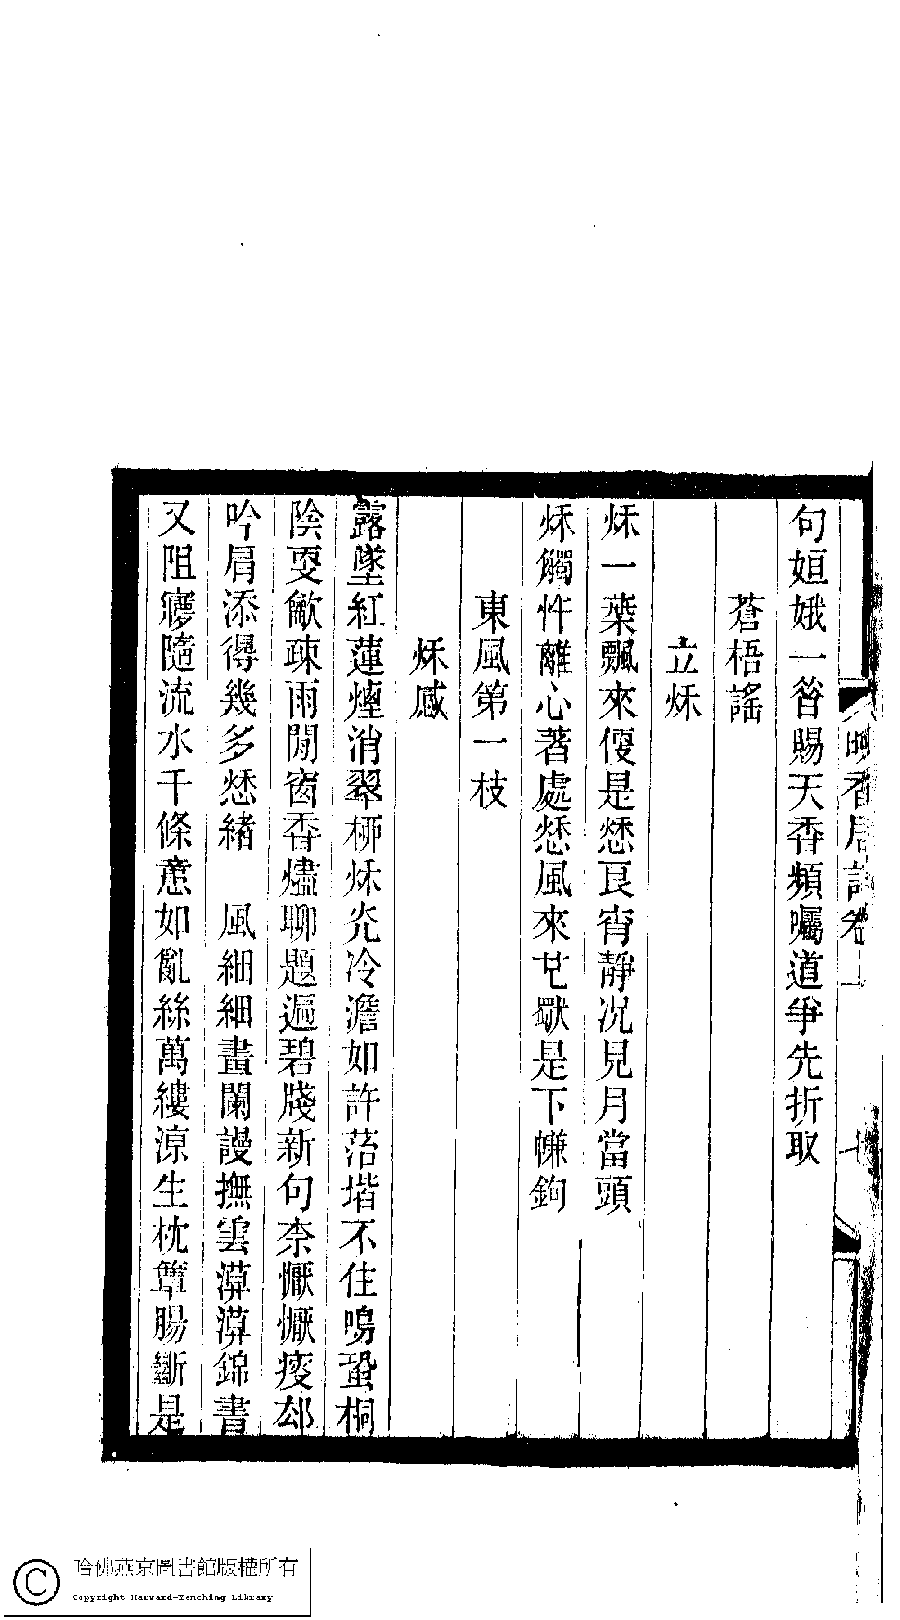 晚香居詞卷上
句姮娥一笑賜天香頻囑道爭先折取
蒼梧謠
立秌
秌一葉飄來偃是愁良宵靜况見月當頭
秌觸忤離心著處愁風來芒歇是下㡘鉤
東風第一枝
秌感
露墜紅蓮煙消翠栁秌光冷澹如許落堦不住鳴蛩桐
陰叓歒疎雨閒窗香燼聊題遍碧牋新句柰懨懨瘦郄
吟肩添得幾多愁緒　風細細畫闌謾撫雲漠漠錦書
又阻㝱隨流水千條意如亂絲萬縷凉生枕簟腸斷是
哈佛燕京圖書館版權所有
Copyright Harvard-Yenching Library